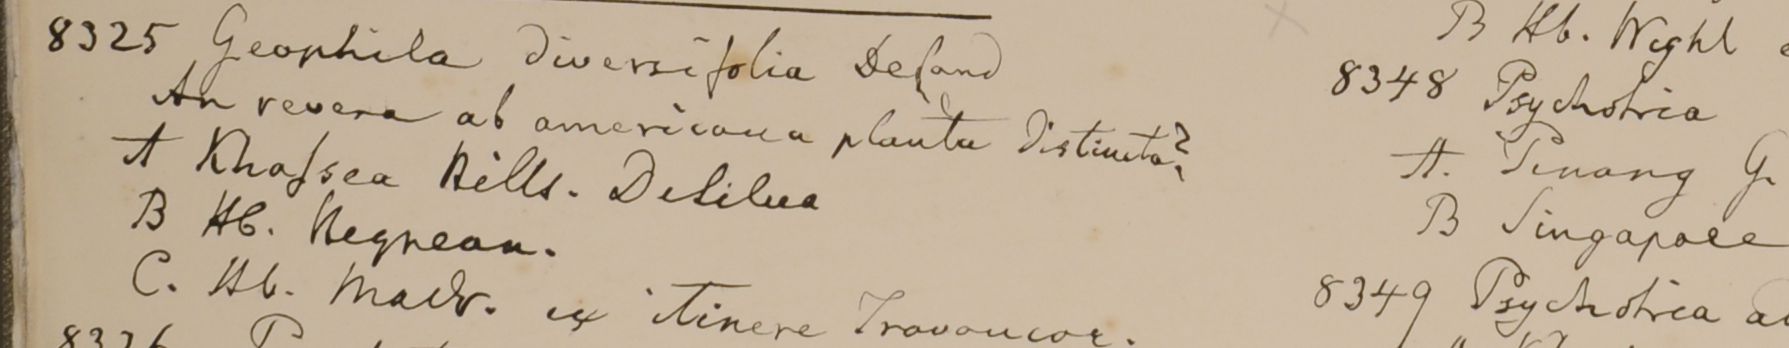 8325 Geophila diversifolia DeCand
An revera ab americana planta distincta?
A Khasſea Hills. DeSilva
B Hb. Heyneau.
C. Hb. Madr. ex itinere Travancor.
8326
B Hb. Wight
8348 Psychotria
A. Penang G
B Singapore
8349 Psychotria